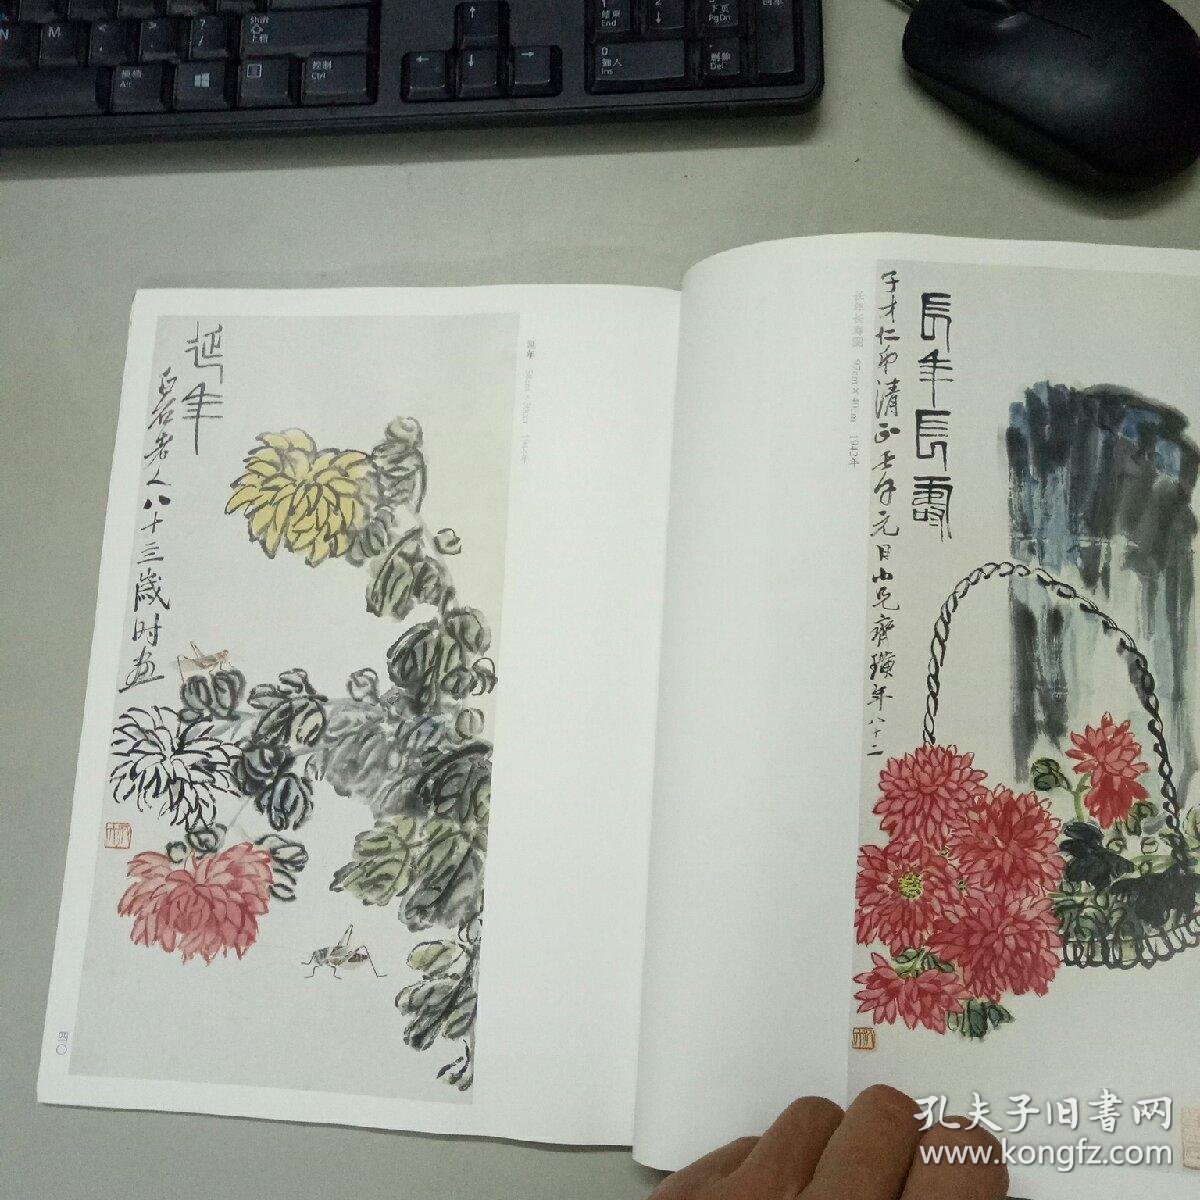 N
M
Shift
上档
换档
Alt
控制
Ctrl
1
结束
End
2
↓
下页
PgDn
0
插入
Ins
删除
Del
←
↓
→
延年
白石老人八十三岁时画
延年
四〇
長年長壽
子才仁弟清正壬午元日小兄齊璜年八十二
长年长寿图 97cm×40cm 1942年
孔夫子旧書网
www.kongfz.com